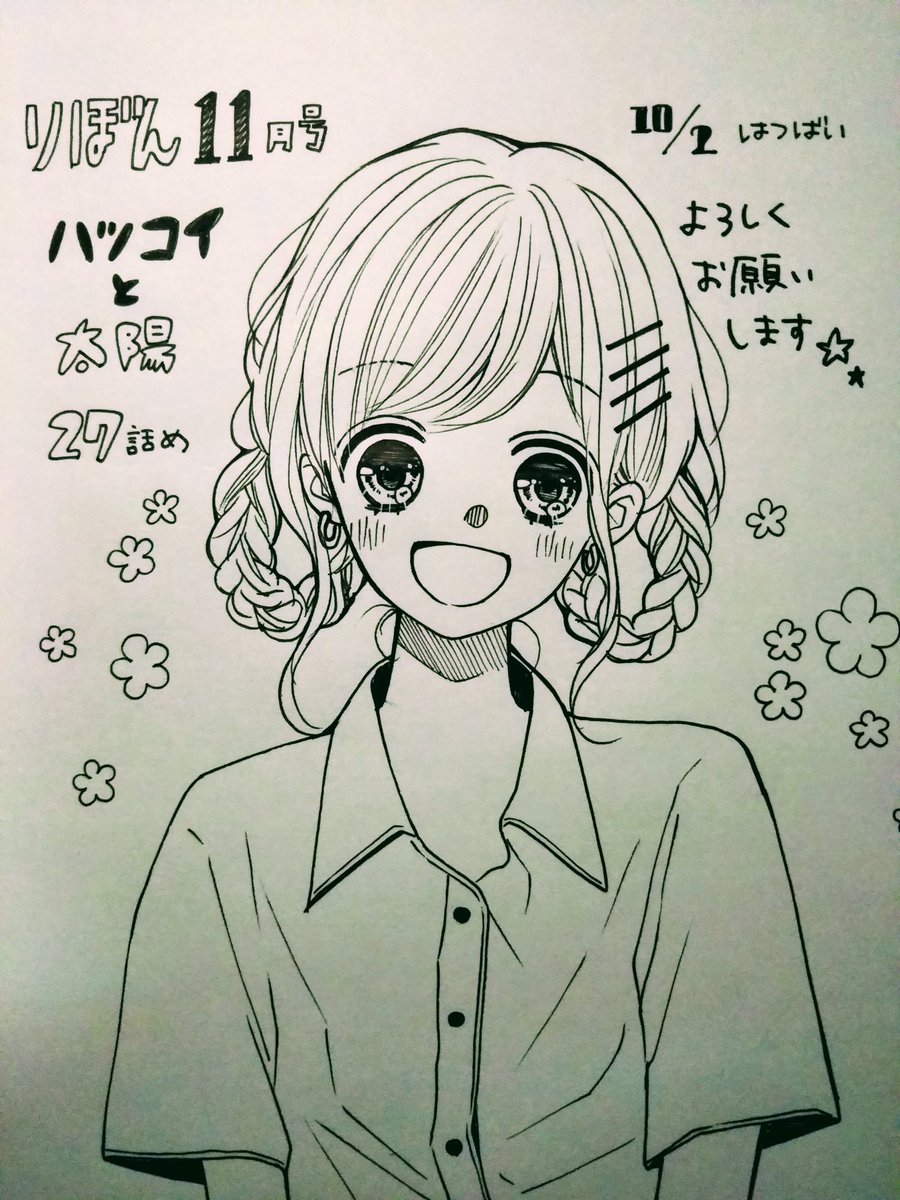 りぼん11月号
ハツコイ
と
太陽
27話め
10/2 はつばい
よろしく
お願い
します☆★